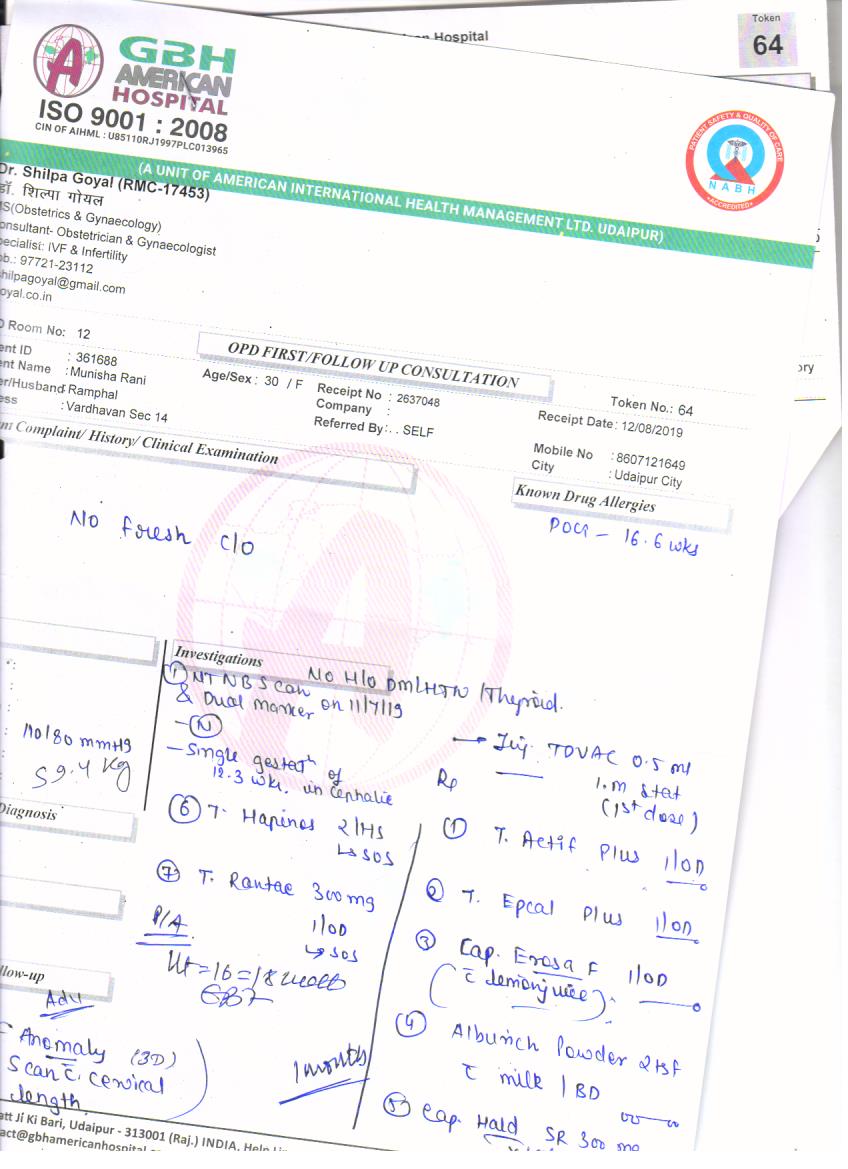 Hospital
Token
64
GBH
AMERICAN
HOSPITAL
ISO 9001 : 2008
CIN OF AIHML : U85110RJ1997PLC013965
PATIENT SAFETY & QUALITY OF CARE
NABH
ACCREDITED
(A UNIT OF AMERICAN INTERNATIONAL HEALTH MANAGEMENT LTD. UDAIPUR)
Dr. Shilpa Goyal (RMC-17453)
डॉ. शिल्पा गोयल
MS(Obstetrics & Gynaecology)
onsultant- Obstetrician & Gynaecologist
pecialist: IVF & Infertility
ob.: 97721-23112
hilpagoyal@gmail.com
oyal.co.in
D Room No: 12
OPD FIRST/FOLLOW UP CONSULTATION
ent ID : 361688
ent Name : Munisha Rani
er/Husband : Ramphal
ess : Vardhavan Sec 14
Age/Sex : 30 / F
Receipt No : 2637048
Company :
Referred By : . . SELF
Token No.: 64
Receipt Date : 12/08/2019
Mobile No : 8607121649
City : Udaipur City
ory
nt Complaint/ History/ Clinical Examination
Known Drug Allergies
POG - 16.6 wks
No fresh c/o
Investigations
No H/o DM/HTN/Thyroid.
① NT NB Scan
& Dual Marker on 11/7/19
- Ⓝ
- Single gestatn of
12.3 wks. in cephalic
110/80 mmHg
59.4 Kg
Diagnosis
→ Inj. TOVAC 0.5 ml
1.m stat
(1st dose)
Rp
① T. Actif Plus 1/OD
② T. Epcal Plus 1/OD
③ Cap. Erosa F 1/OD
(c̄ lemon juice)
④ Albunch Powder 2tsf
c̄ milk / BD
⑤ Cap. Hald SR 300 mg
⑥ T. Hapinos 2/HS
↳ SOS
⑦ T. Rantac 300 mg
1/OD
↳ SOS
P/A
Ut = 16 = 18 week
llow-up
Adv
- Anomaly (3D)
Scan c̄ cervical
length
1 month
att Ji Ki Bari, Udaipur - 313001 (Raj.) INDIA, Help Li
act@gbhamericanhospital.